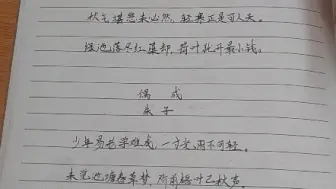 状气堪悲未必然，轻寒正是可人天。
绿池落尽红蕖却，荷叶犹开最小钱。
偶成
朱子
少年易老学难成，一寸光阴不可轻。
未觉池塘春草梦，阶前梧叶已秋声。